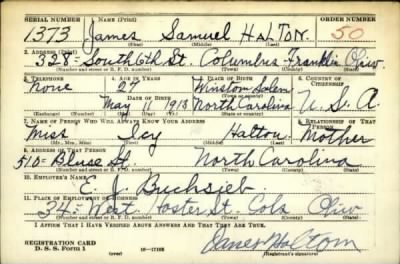 SERIAL NUMBER 1. NAME (Print) ORDER NUMBER
1373 James Samuel HALTON 50
(First) (Middle) (Last)
2. ADDRESS (Print)
328 South 6th St. Columbus Franklin Ohio
(Number and street or R. F. D. number) (Town) (County) (State)
3. TELEPHONE 4. AGE IN YEARS 5. PLACE OF BIRTH 6. COUNTRY OF CITIZENSHIP
None 27 Winston Salem
DATE OF BIRTH
May 11 1913 North Carolina U. S. A.
(Exchange) (No.) (Mo.) (Day) (Yr.) (State or country)
7. NAME OF PERSON WHO WILL ALWAYS KNOW YOUR ADDRESS 8. RELATIONSHIP OF THAT PERSON
Miss Icy Halton Mother
(Mr., Mrs., Miss) (First) (Middle) (Last)
9. ADDRESS OF THAT PERSON
510 St. North Carolina
(Number and street or R. F. D. number) (Town) (County) (State)
10. EMPLOYER'S NAME
E. J. Buchsieb
11. PLACE OF EMPLOYMENT OR BUSINESS
34 West Hoster St. Cols Ohio
(Number and street or R. F. D. number) (Town) (County) (State)
I AFFIRM THAT I HAVE VERIFIED ABOVE ANSWERS AND THAT THEY ARE TRUE.
REGISTRATION CARD
D. S. S. Form 1 (over) 16-17105 (Registrant's signature)
James Halton